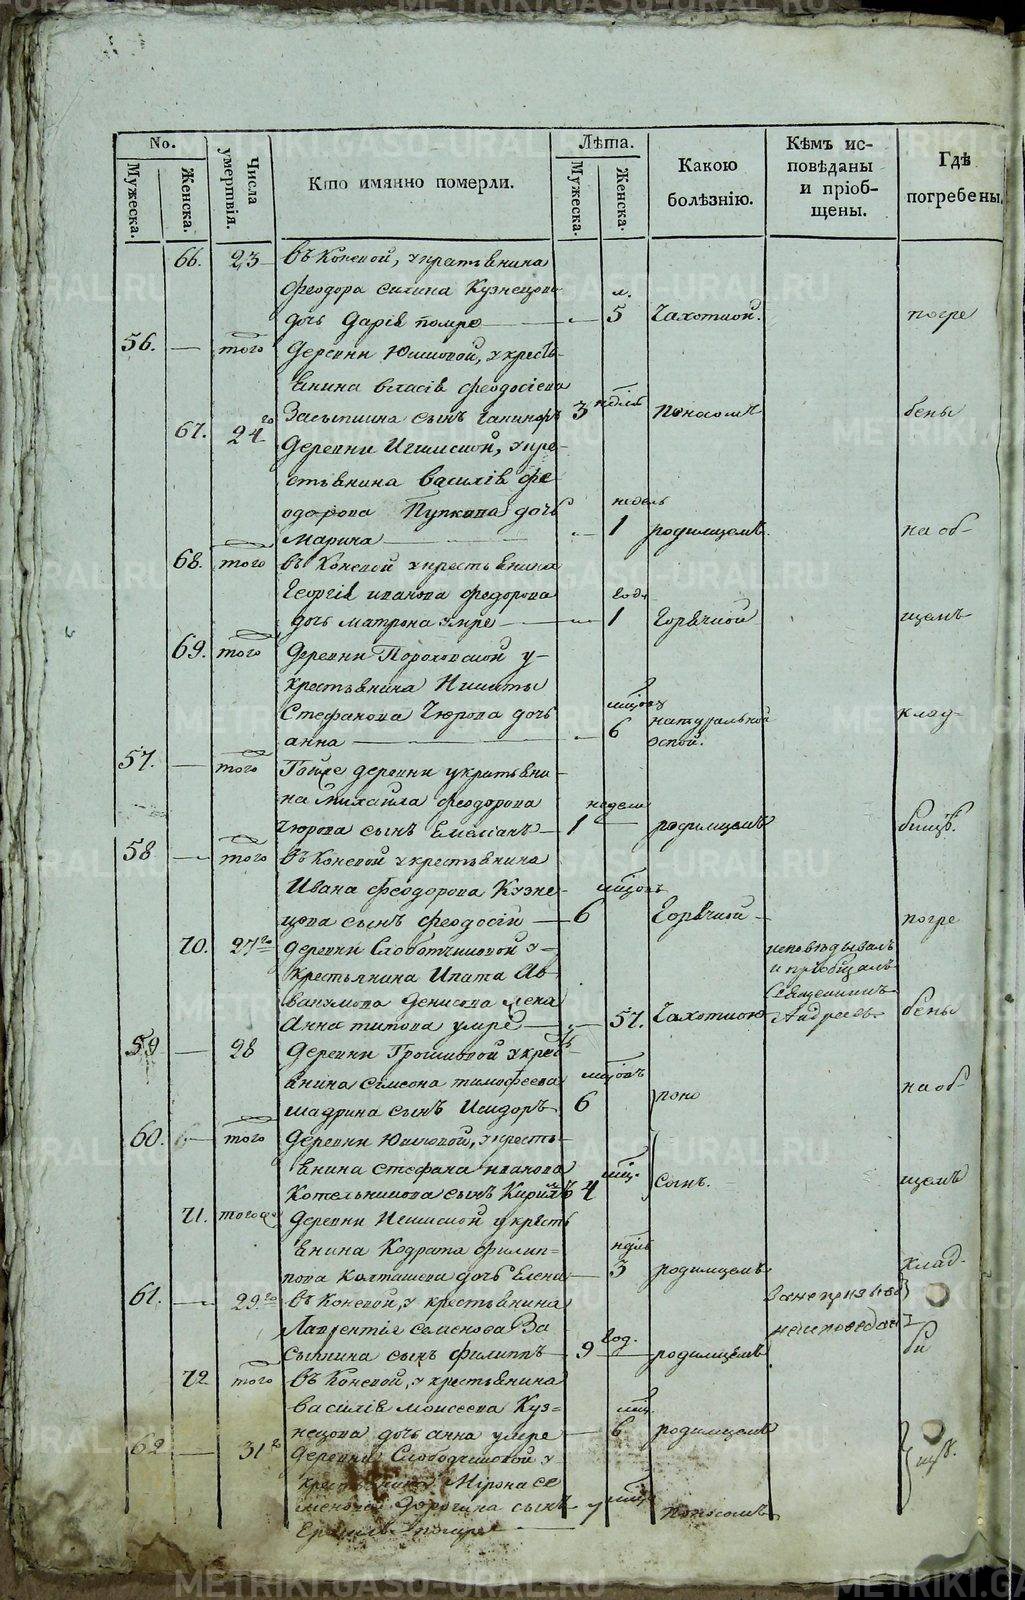 No.
Мужеска.
Женска.
Числа умертвія.
Кто имянно померли.
Лѣта.
Мужеска.
Женска.
Какою болѣзнію.
Кѣмъ исповѣданы и пріобщены.
Гдѣ погребены.
66. 23 въ Коневой, у крестьянина
Феодора Силина Кузнецова л.
дочь Дарія помре 5 Чахоткой. погре
56. того деревни Юшковой, у кресть-
янина Власія Феодосіева
Засыпкина сынъ 3 недель поносомъ бены
67. 24 го
деревни Игишской, у кре-
стьянина Василія Фе
одорова Пупкова дочь недель
Марина 1 родимцемъ. на об-
68. того въ Коневой у крестьянина
Георгія Иванова Федорова годъ
дочь Матрона умре 1 Горячкой щемъ
69. того деревни Пороховской у-
крестьянина Никиты
Стефанова Чюрова дочь
Анна 6 натуральной оспой. клад-
57. того Тойже деревни у крестьяни-
на Михайла Феодорова недели
Чюрова сынъ Емеліанъ 1 родимцемъ бищѣ.
58 того въ Коневой у крестьянина
Ивана Феодорова Кузне-
цова сынъ Феодосій 6 Горячкой погре
70. 27 го деревни Слободчиковой у- исповѣдывалъ
крестьянина Ипата Ав- и пріобщалъ
вакумова Денисова жена Священникъ
Анна Титова умре 57. Чахоткою Андреевъ бены
59 28 деревни Грошковой у крест-
янина Симеона Тимофеева
Шадрина сынъ Исидоръ 6 поно на об-
60. того деревни Юшковой, у кресть-
янина Стефана Иванова
Котельникова сынъ Кирилъ 4 сомъ. щемъ
71. того деревни Игишской у кресть
янина Кодрата Филип-
пова Колташева дочь Елена 3 родимцемъ клад-
61. 29 го въ Коневой, у крестьянина
Лаврентія Семенова За год.
сыпкина сынъ Филиппъ 9 родимцемъ би
72 того въ Коневой, у крестьянина
Василія Моисеева Куз-
нецова дочь Анна умре 6 родимцемъ
62 31 го деревни Слободчиковой у щѣ.
крестьянина Мірона Се
менова сынъ 7 поносомъ
помре